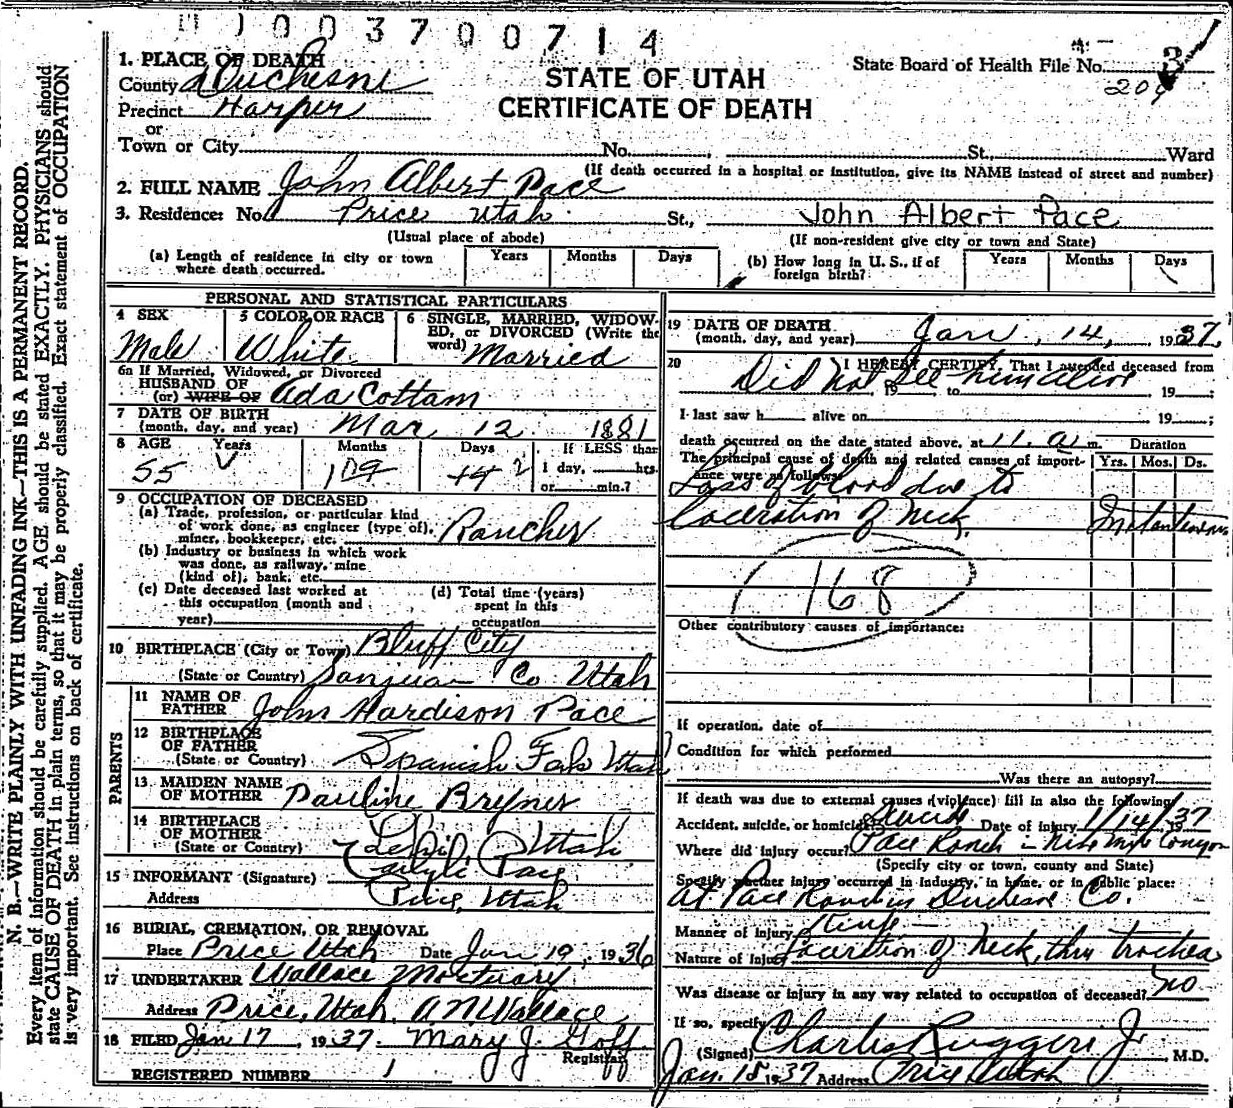 0 0 3 7 0 0 7 1 4
1. PLACE OF DEATH
County Duchesne
Precinct Harper
or
Town or City No. St., Ward
STATE OF UTAH
CERTIFICATE OF DEATH
State Board of Health File No. 3
209
(If death occurred in a hospital or institution, give its NAME instead of street and number)
2. FULL NAME John Albert Pace
3. Residence: No. Price Utah St., John Albert Pace
(Usual place of abode) (If non-resident give city or town and State)
(a) Length of residence in city or town where death occurred. Years Months Days
(b) How long in U. S., if of foreign birth? Years Months Days
N. B.—WRITE PLAINLY WITH UNFADING INK—THIS IS A PERMANENT RECORD.
Every item of information should be carefully supplied. AGE should be stated EXACTLY. PHYSICIANS should
state CAUSE OF DEATH in plain terms, so that it may be properly classified. Exact statement of OCCUPATION
is very important. See instructions on back of certificate.
PERSONAL AND STATISTICAL PARTICULARS
4 SEX
Male
5 COLOR OR RACE
White
6 SINGLE, MARRIED, WIDOW-
ED, or DIVORCED (Write the
word) Married
6a If Married, Widowed, or Divorced
HUSBAND OF
(or) WIFE OF Ada Cottam
7 DATE OF BIRTH
(month, day, and year) Mar 12 1881
8 AGE Years Months Days If LESS than
55 10 2 1 day, hrs.
or min.?
9 OCCUPATION OF DECEASED
(a) Trade, profession, or particular kind
of work done, as engineer (type of),
miner, bookkeeper, etc. Rancher
(b) Industry or business in which work
was done, as railway, mine
(kind of), bank, etc.
(c) Date deceased last worked at
this occupation (month and
year)
(d) Total time (years)
spent in this
occupation
10 BIRTHPLACE (City or Town) Bluff City
(State or Country) Sanjuan Co Utah
PARENTS
11 NAME OF
FATHER John Hardison Pace
12 BIRTHPLACE
OF FATHER
(State or Country) Spanish Fork Utah
13 MAIDEN NAME
OF MOTHER Pauline Bryner
14 BIRTHPLACE
OF MOTHER
(State or Country) Utah
15 INFORMANT (Signature) Pace
Address Price, Utah
16 BURIAL, CREMATION, OR REMOVAL
Place Price Utah Date Jan 19, 1936
17 UNDERTAKER Wallace Mortuary
Address Price, Utah. A N Wallace
18 FILED Jan 17, 1937. Mary J. Goff
Registrar
REGISTERED NUMBER 1
19 DATE OF DEATH
(month, day, and year) Jan. 14, 1937.
20 I HEREBY CERTIFY, That I attended deceased from
Did not see him alive
, 19 to 19 ;
I last saw h alive on 19 ;
death occurred on the date stated above, at 11. a m. Duration
The principal cause of death and related causes of import-
ance were as follows: Yrs. Mos. Ds.
Loss of blood due to
laceration of neck. Instantaneous
168
Other contributory causes of importance:
If operation, date of
Condition for which performed
Was there an autopsy?
If death was due to external causes (violence) fill in also the following:
Accident, suicide, or homicide Suicide Date of injury 1/14/1937
Where did injury occur? Pace Ranch in Nine Mile Canyon
(Specify city or town, county and State)
Specify whether injury occurred in industry, in home, or in public place:
At Pace Ranch in Duchesne Co.
Manner of injury Knife
Nature of Injury Laceration of neck, thru trachea
Was disease or injury in any way related to occupation of deceased? no
If so, specify
(Signed) Charles Ruggeri Jr , M.D.
Jan. 15 1937 Address Price Utah